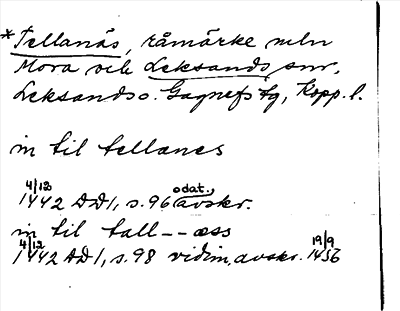 *Tellanäs, råmärke meln
Mora och Leksands snr,
Leksands o. Gagnefs tg, Kopp. l.
in til tellanes
4/12 1442 DD1, s. 96 odat., avskr.
in til tall--æss
4/12 1442 DD1, s. 98 vidim. avskr. 19/9 1456